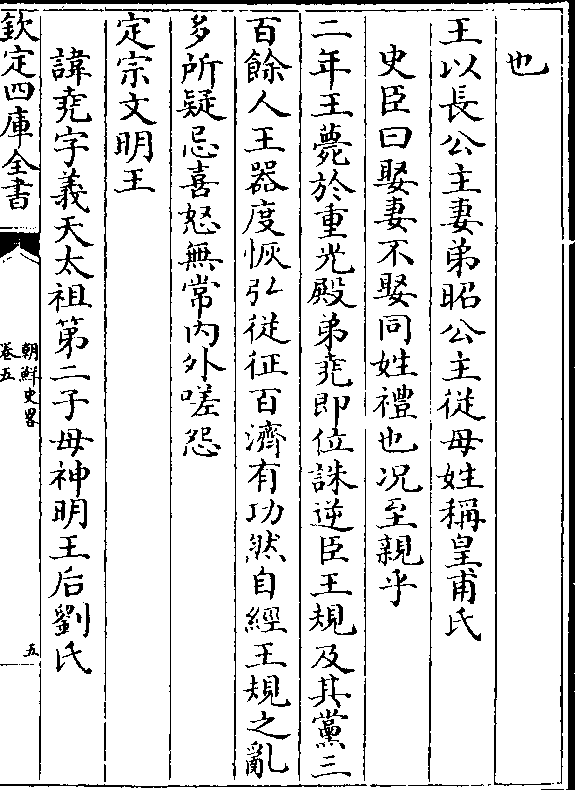 也
王以長公主妻弟昭公主從母姓稱皇甫氏
史臣曰娶妻不娶同姓禮也况至親乎
二年王薨於重光殿弟堯即位誅逆臣王規及其黨三
百餘人王器度恢弘從征百濟有功然自經王規之亂
多所疑忌喜怒無常内外嗟怨
定宗文明王
諱堯字義天太祖第二子母神明王后劉氏
欽定四庫全書
朝鮮史畧
卷五
五